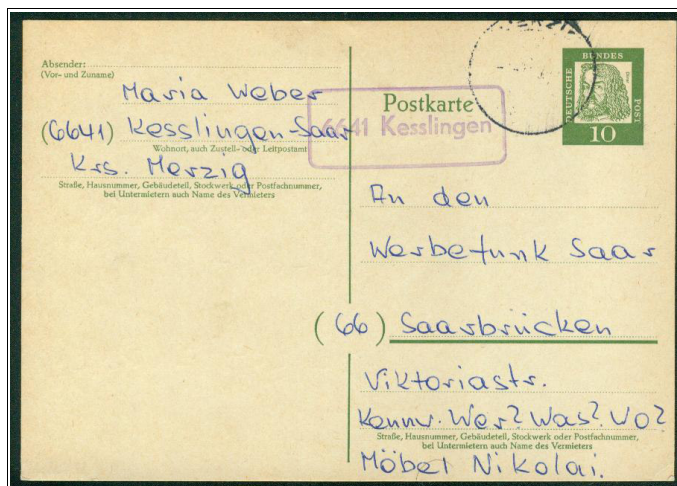 Absender:
(Vor- und Zuname)
Maria Weber
(6641) Kesslingen-Saar
Wohnort, auch Zustell- oder Leitpostamt
Krs. Merzig
Straße, Hausnummer, Gebäudeteil, Stockwerk oder Postfachnummer,
bei Untermietern auch Name des Vermieters
Postkarte
6641 Kesslingen
DEUTSCHE
BUNDES
POST
10
An den
Werbefunk Saar
(66) Saarbrücken
Viktoriastr.
Kennw. Wer? Was? Wo?
Straße, Hausnummer, Gebäudeteil, Stockwerk oder Postfachnummer,
bei Untermietern auch Name des Vermieters
Möbel Nikolai.